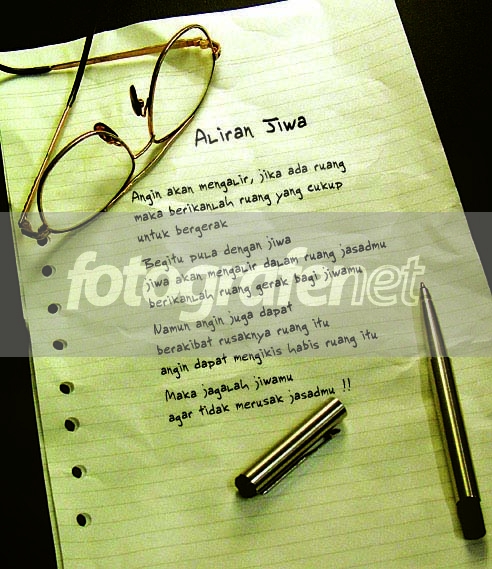 Aliran Jiwa
Angin akan mengalir, jika ada ruang
maka berikanlah ruang yang cukup
untuk bergerak
Begitu pula dengan jiwa
jiwa akan mengalir dalam ruang jasadmu
berikanlah ruang gerak bagi jiwamu
Namun angin juga dapat
berakibat rusaknya ruang itu
angin dapat mengikis habis ruang itu
Maka jagalah jiwamu
agar tidak merusak jasadmu !!
fotografernet